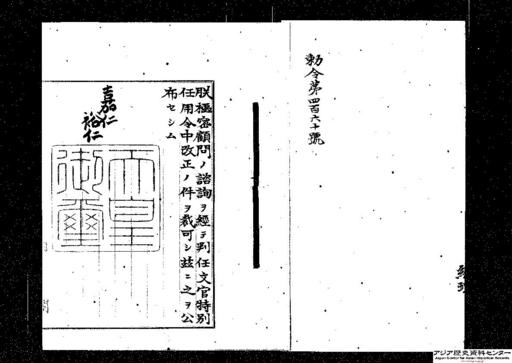 勅令第四百六十號
朕樞密顧問ノ諮詢ヲ經テ判任文官特別
任用令中改正ノ件ヲ裁可シ茲ニ之ヲ公
布セシム
嘉仁
裕仁
天皇
御璽
アジア歴史資料センター
Japan Center for Asian Historical Records